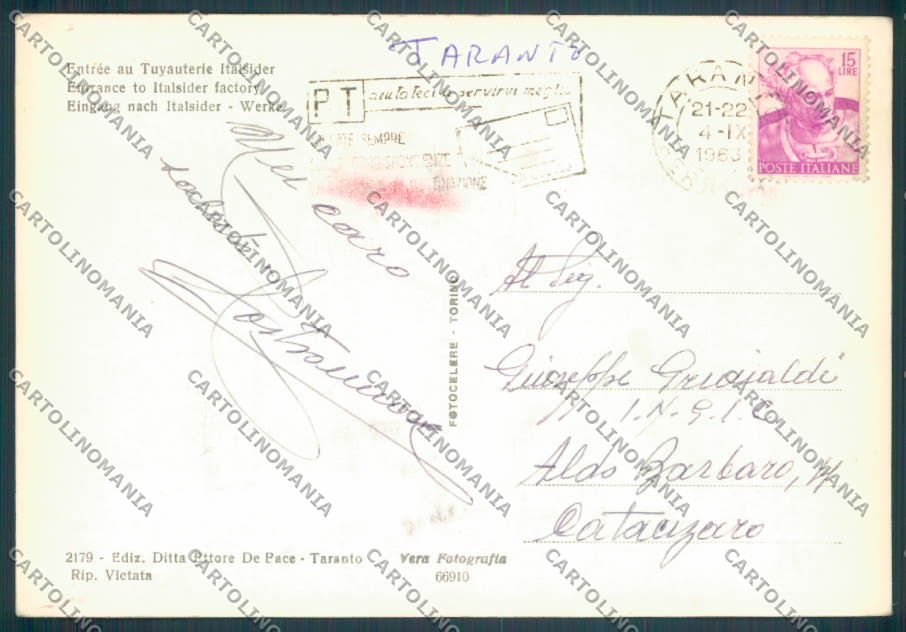 TARANTO
Entrée au Tuyauterie Italsider
Entrance to Italsider factory
Eingang nach Italsider - Werke
PT aiutateci a servirvi meglio
SEMPRE
TARANTO
21-22
4-IX
1963
15 LIRE
POSTE ITALIANE
caro
FOTOCELERE - TORINO
Al Sig.
Giuseppe Grimaldi
I.N.G.I.C.
Aldo Barbaro, 4
Catanzaro
2179 - Ediz. Ditta Ettore De Pace - Taranto
Rip. Vietata
Vera Fotografia
66910
CARTOLINOMANIA